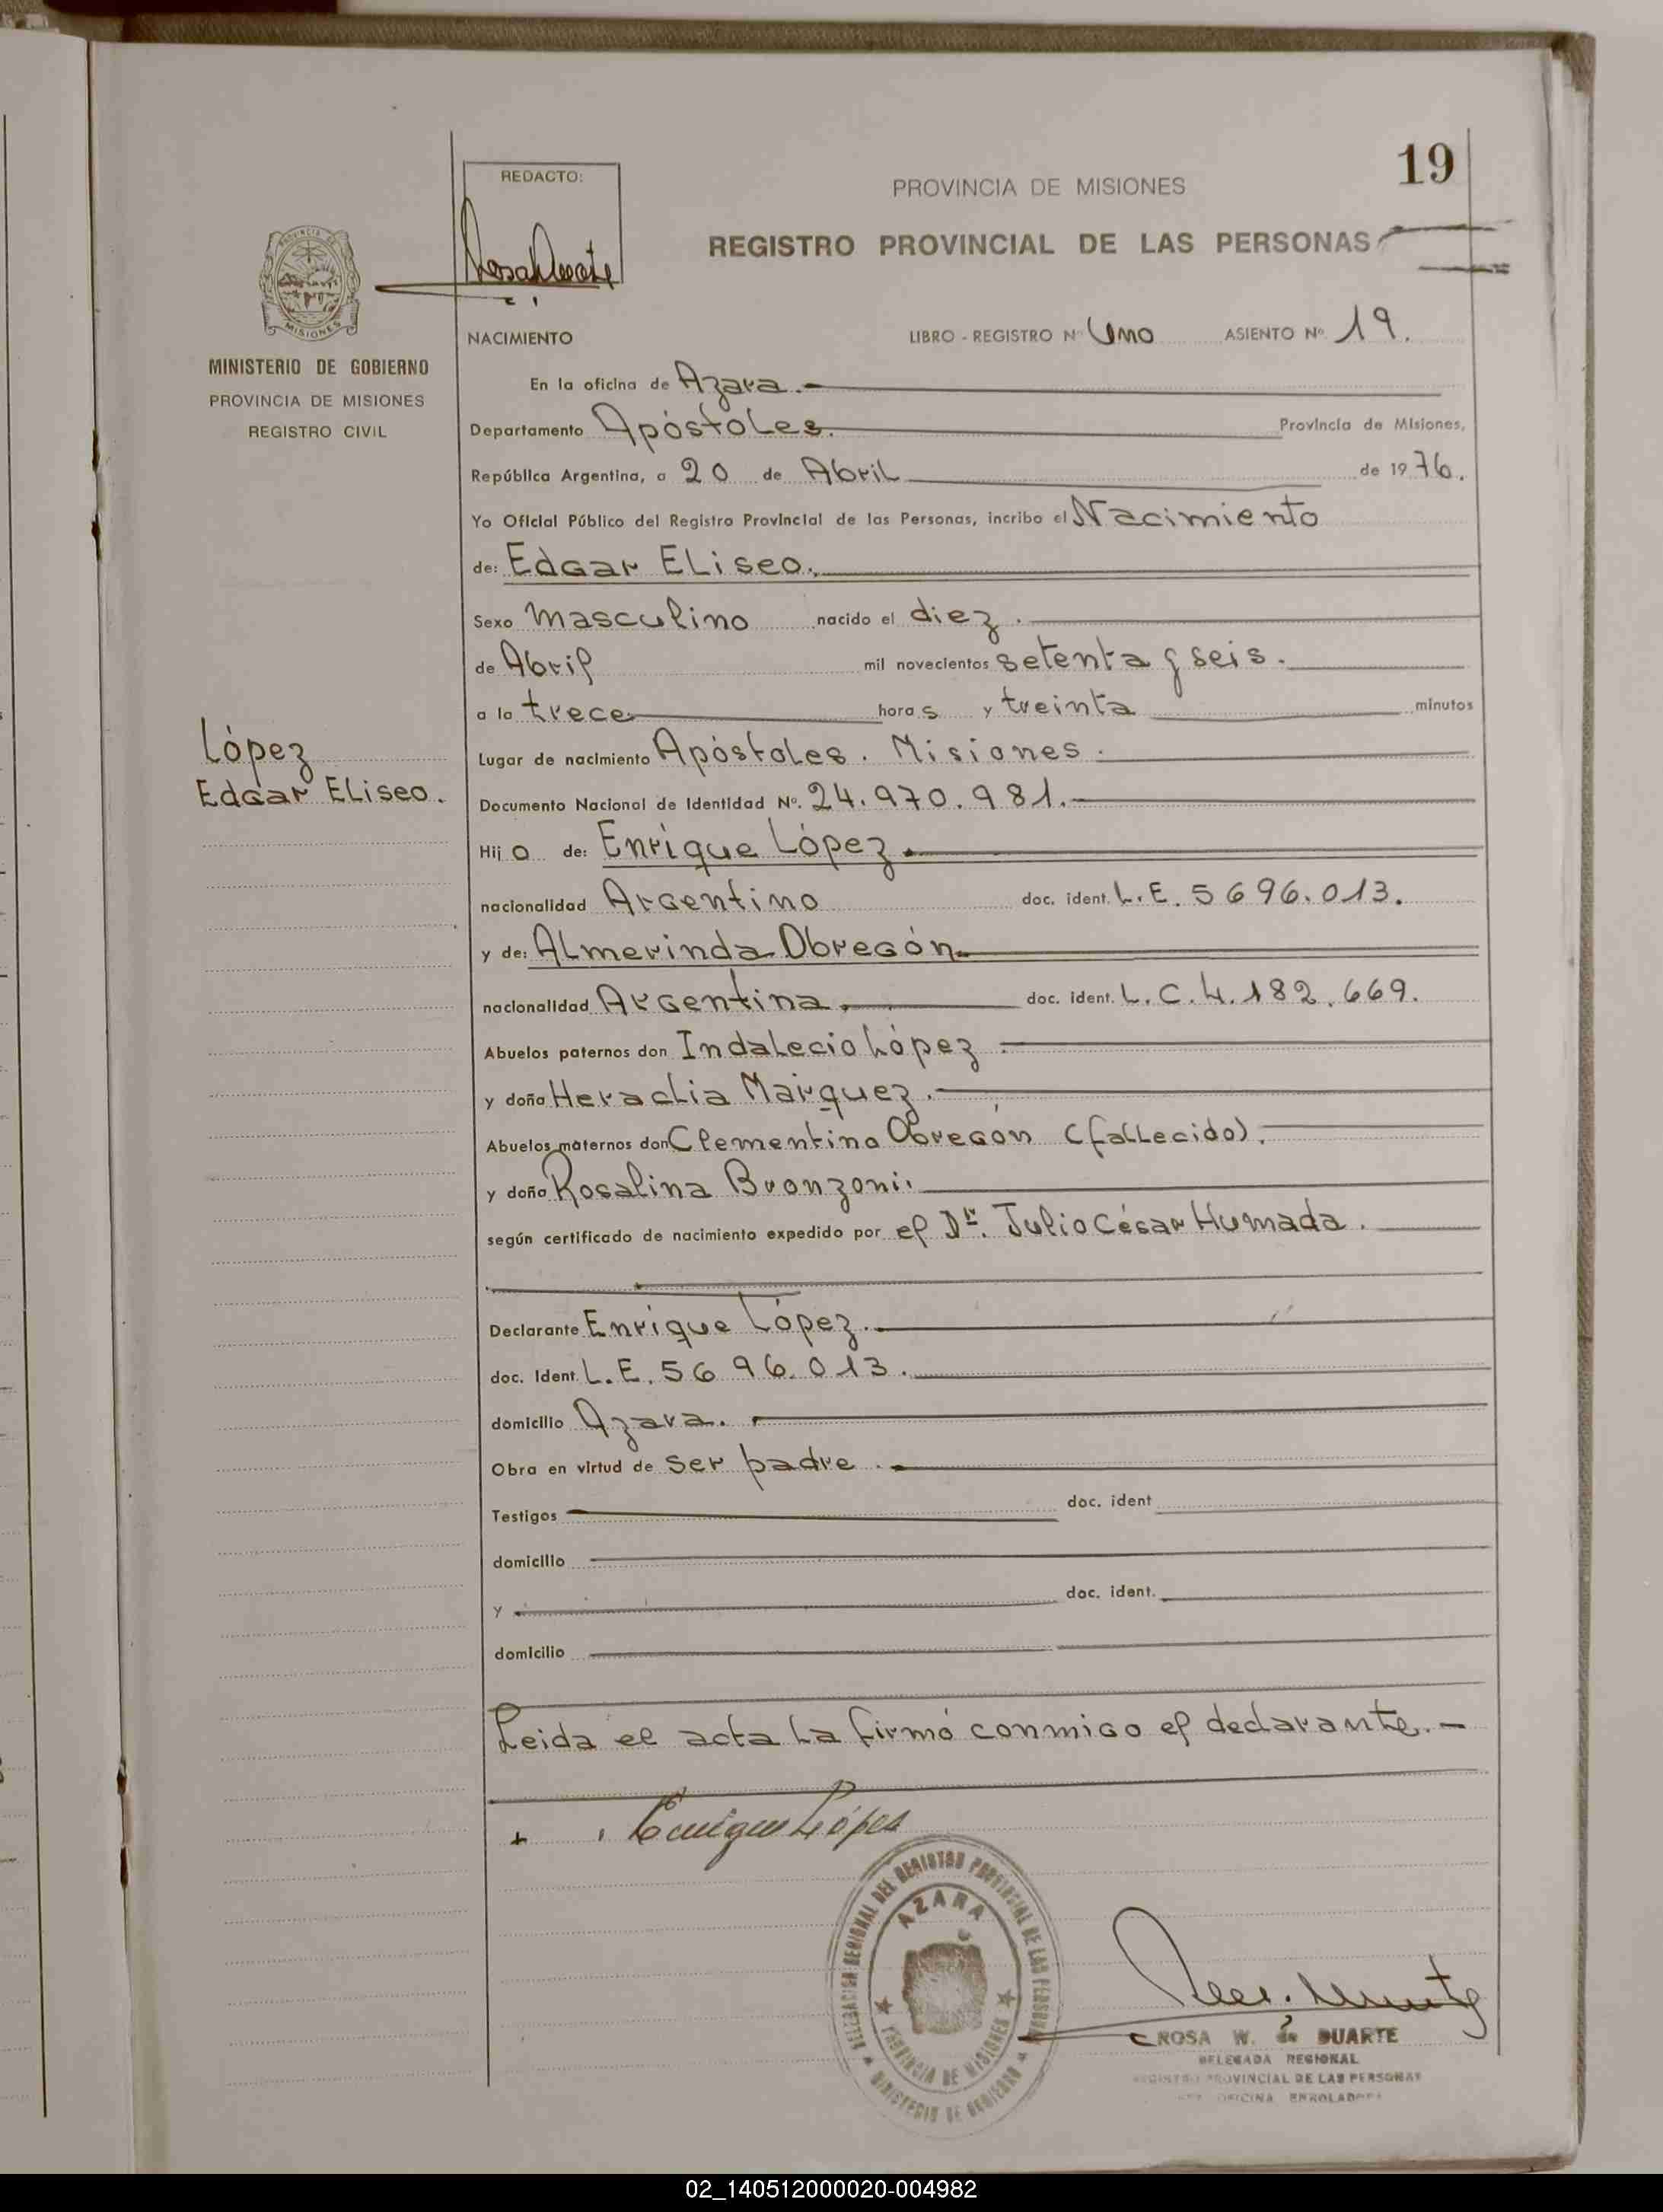 19
REDACTO:
PROVINCIA DE MISIONES
REGISTRO PROVINCIAL DE LAS PERSONAS
PROVINCIA DE
MISIONES
MINISTERIO DE GOBIERNO
PROVINCIA DE MISIONES
REGISTRO CIVIL
NACIMIENTO LIBRO - REGISTRO Nº Uno ASIENTO Nº 19.
En la oficina de Azara.
Departamento Apóstoles. Provincia de Misiones,
República Argentina, a 20 de Abril de 1976.
Yo Oficial Público del Registro Provincial de las Personas, incribo el Nacimiento
de: Edgar Eliseo.
Sexo masculino nacido el diez.
de Abril mil novecientos setenta y seis.
a la trece horas y treinta minutos
López
Edgar Eliseo.
Lugar de nacimiento Apóstoles. Misiones.
Documento Nacional de Identidad Nº. 24.970.981.
Hijo de: Enrique López.
nacionalidad Argentino doc. ident. L.E. 5696.013.
y de: Almerinda Obregón
nacionalidad Argentina. doc. ident. L.C.4.182.669.
Abuelos paternos don Indalecio López.
y doña Heraclia Márquez.
Abuelos maternos don Clementino Obregón (fallecido).
y doña Rosalina Bronzoni.
según certificado de nacimiento expedido por el Dr. Julio César Humada.
Declarante Enrique López.
doc. Ident. L.E. 5696.013.
domicilio Azara.
Obra en virtud de ser padre.
Testigos doc. ident
domicilio
y doc. ident.
domicilio
Leida el acta la firmó conmigo el declarante.-
Enrique López
DELEGACION REGIONAL DEL REGISTRO PROVINCIAL DE LAS PERSONAS
AZARA
PROVINCIA DE MISIONES
MINISTERIO DE GOBIERNO
ROSA W. de DUARTE
DELEGADA REGIONAL
REGISTRO PROVINCIAL DE LAS PERSONAS
OFICINA ENROLADORA
02_140512000020-004982